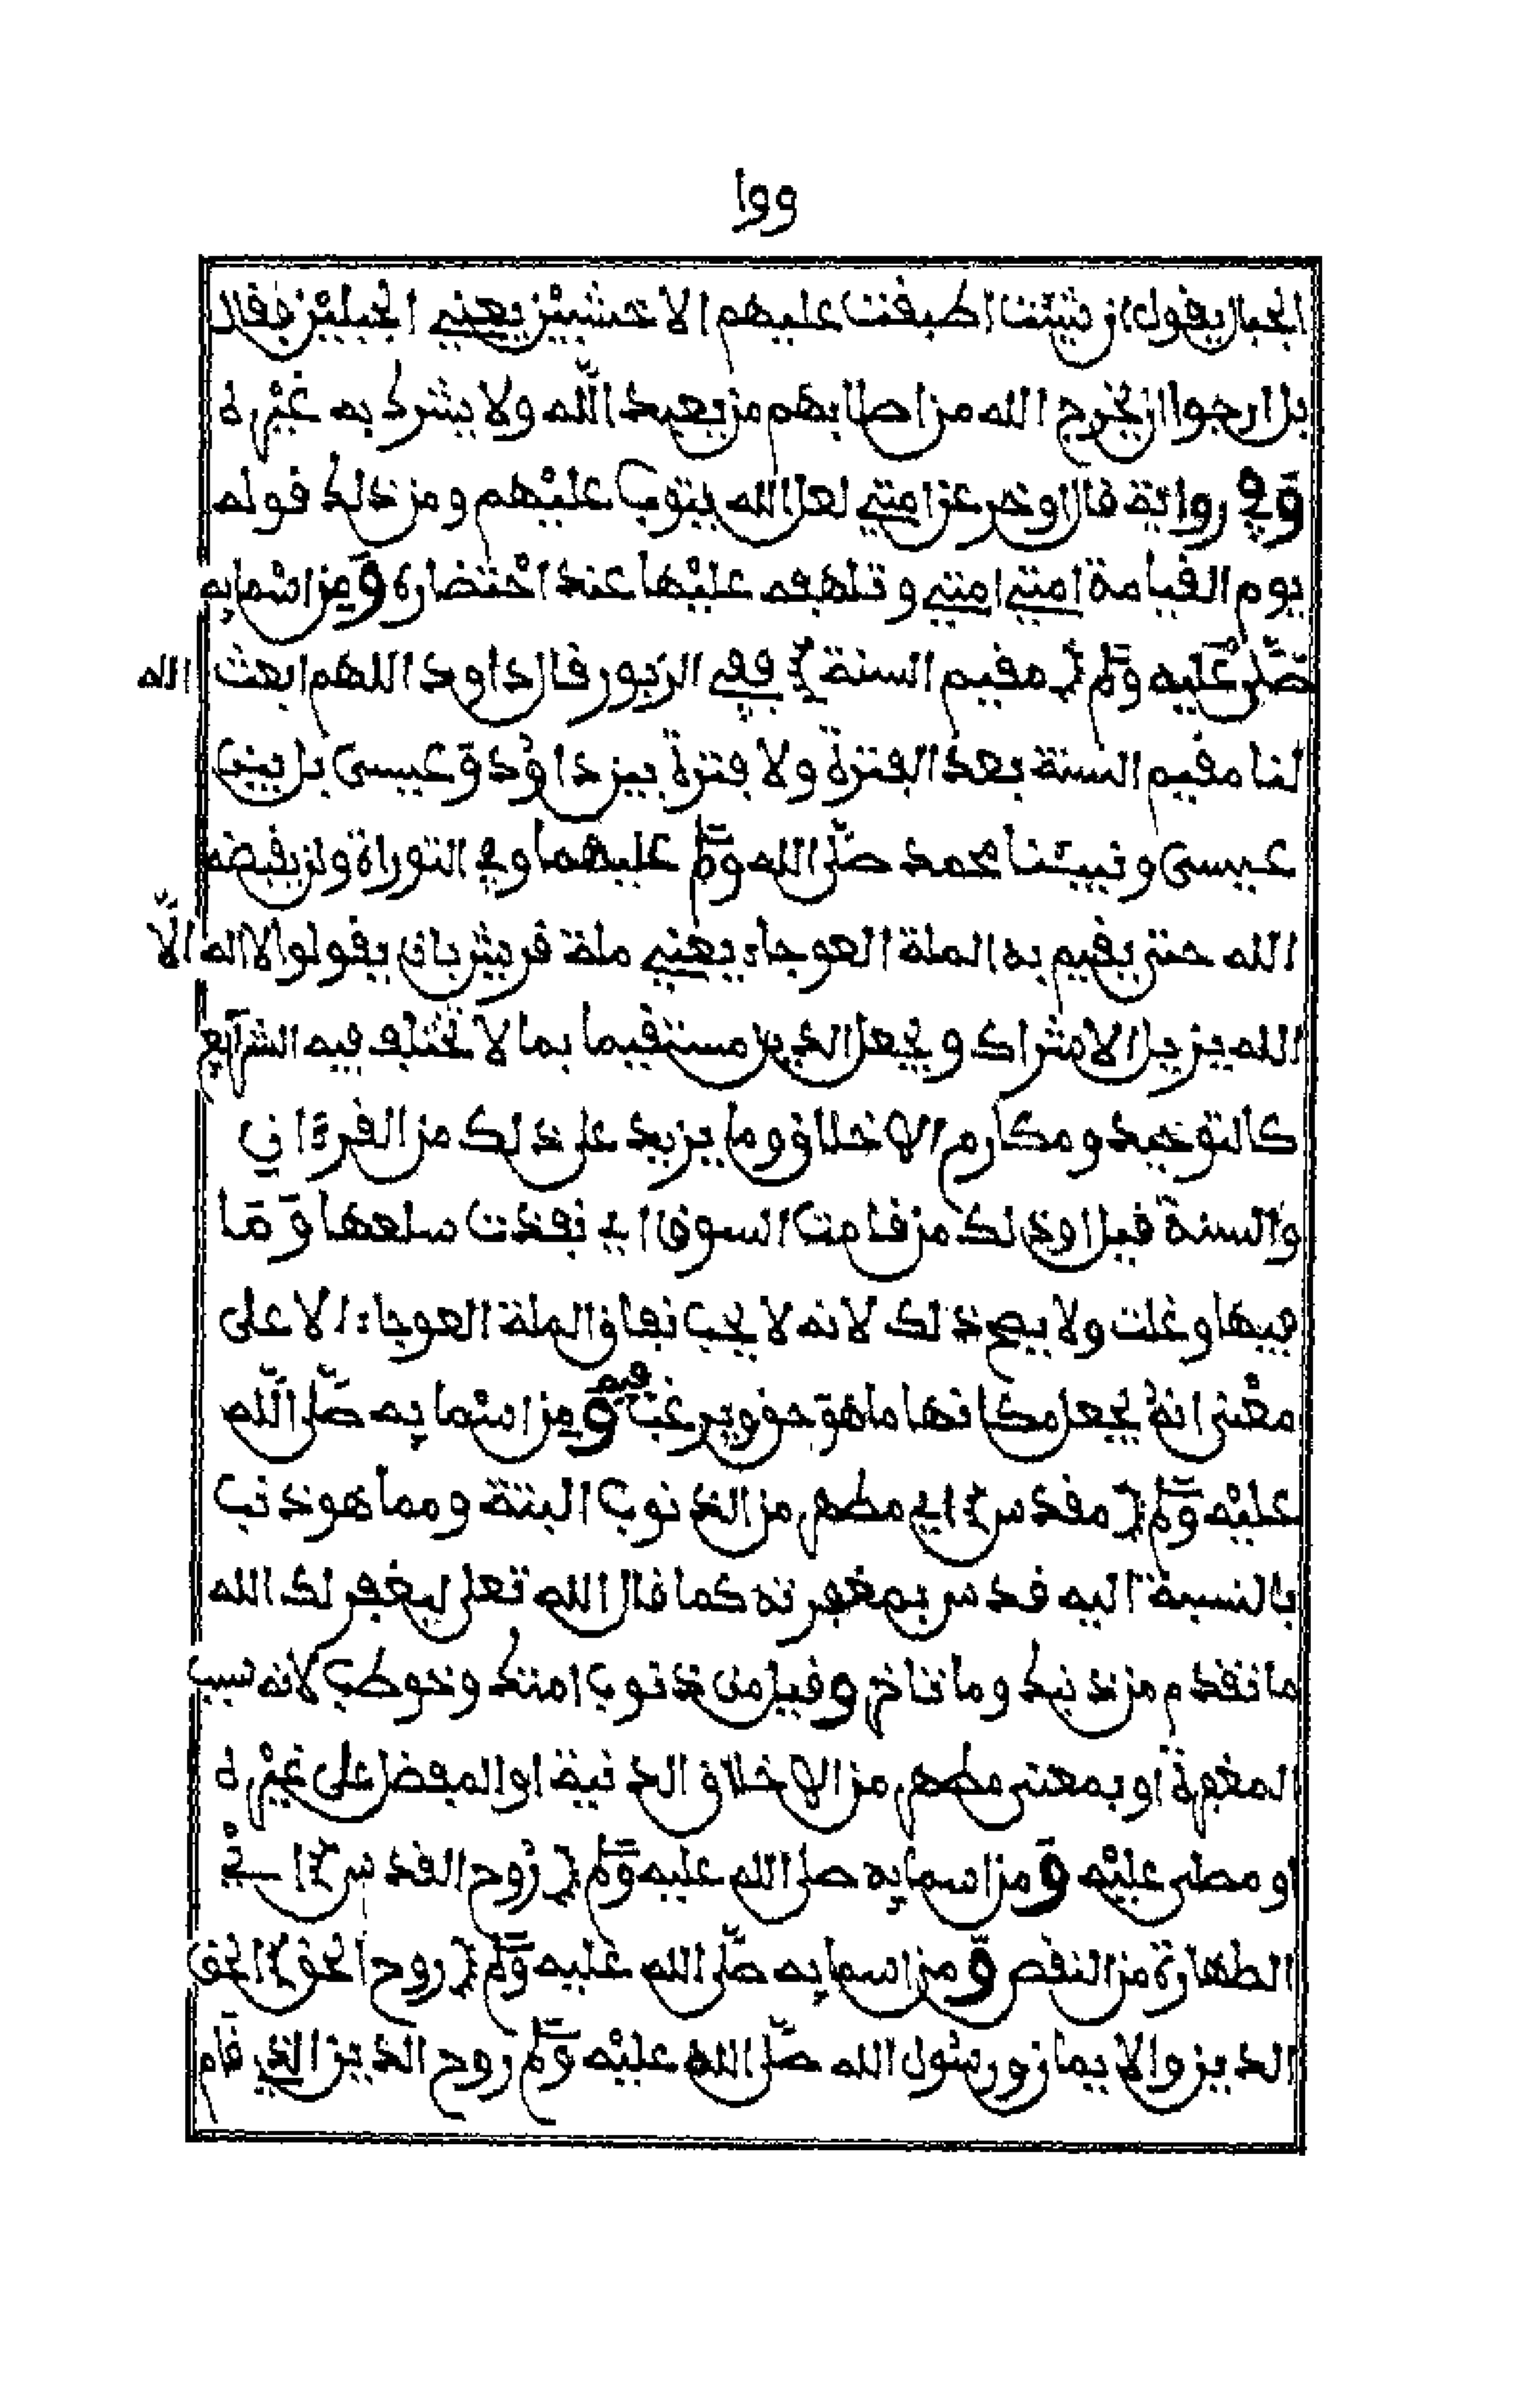 ١٩٩
الجبال يقول ان شئت اطبقت عليهم الاخشبين يعني الجبلين فقال
بل ارجوا ان يخرج الله من اصلابهم من يعبد الله ولا يشرك به غيره
وفي رواية قال اوخر عن امتي لعل الله يتوب عليهم ومن ذلك قوله
يوم القيامة امتي امتي وتلهفه عليها عند احتضاره ومن اسمايه
صلى عليه وسلم {مقيم السنة} ففي الزبور قال داوود اللهم ابعث الله
لنا مقيم السنة بعد الفترة ولا فترة بين داوود وعيسى بل بين
عيسى ونبيئنا محمد صلى الله وسلم عليهما وفي التوراة ولن يقبضه
الله حتى يقيم به الملة العوجاء يعني ملة قريش بان يقولوا لا اله الا
الله يزيل الاشراك ويجعل الدين مستقيما بما لا تختلف فيه الشرايع
كالتوحيد ومكارم الاخلاق وما يزيد على ذلك من القرءان
والسنة قيل او ذلك من قامت السوق اي نفذت سلعها وما
فيها وغلت ولا يصح ذلك لانه لا يجب نفاق الملة العوجاء الا على
معنى انه يجعل مكانها ما هو حق ويرغب فيه ومن اسمايه صلى الله
عليه وسلم {مقدس} اي مطهر من الذنوب البتة ومما هو ذنب
بالنسبة اليه قدس بمغفرته كما قال الله تعلى ليغفر لك الله
ما تقدم من ذنبك وما تاخر وقيل من ذنوب امتك وخوطب لانه سبب
المغفرة او بمعنى مطهر من الاخلاق الدنية او المفضل على غيره
او مصلى عليه ومن اسمايه صلى الله عليه وسلم {روح القدس} اي
الطهارة من النقص ومن اسمايه صلى الله عليه وسلم {روح الحق} الحق
الدين والايمان ورسول الله صلى الله عليه وسلم روح الدين الذي قام